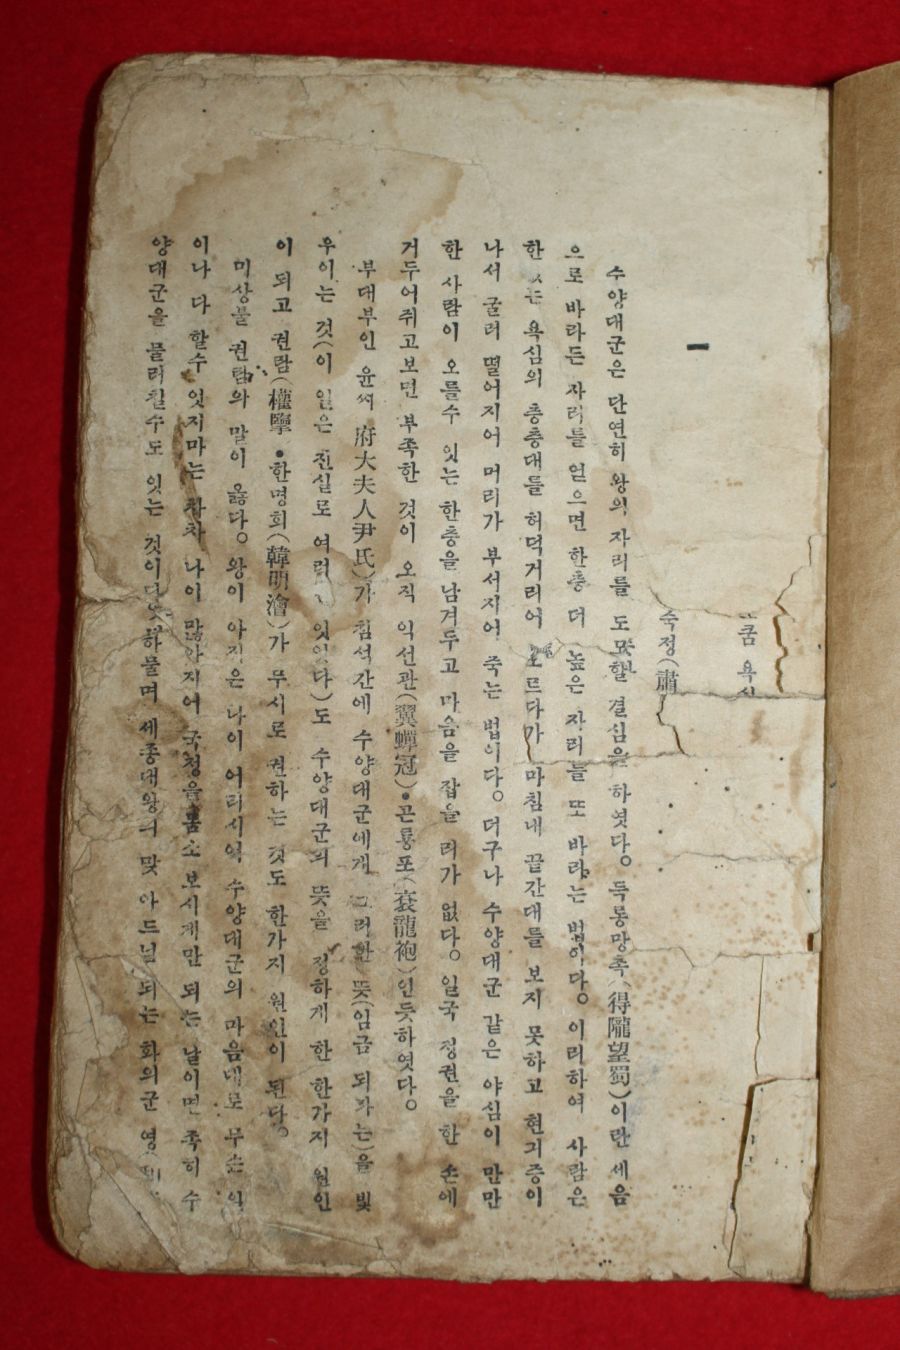 쿰 욕
숙정(肅
一
수양대군은 단연히 왕의 자리를 도모할 결심을 하엿다。득롱망촉(得隴望蜀)이란 세음
으로 바라든 자리를 얻으면 한층 더 높은 자리를 또 바라는 법이다。이리하여 사람은
한 없는 욕심의 층층대를 허덕거리어 오르다가 마침내 끝간대를 보지 못하고 현긔증이
나서 굴러 떨어지어 머리가 부서지어 죽는 법이다。더구나 수양대군 같은 야심이 만만
한 사람이 오를수 잇는 한층을 남겨두고 마음을 잡을 리가 없다。일국 정권을 한 손에
거두어쥐고보면 부족한 것이 오직 익선관(翼蟬冠)•곤룡포(袞龍袍)인듯하엿다。
부대부인 윤씨(府大夫人尹氏)가 침석간에 수양대군에게 그러한 뜻(임금 되라는)을 빛
우이는 것(이 일은 진실로 여러 잇엇다)도 수양대군의 뜻을 정하게 한 한가지 원인
이 되고 권람(權擥•한명회(韓明澮)가 무시로 권하는 것도 한가지 원인이 된다。
미상불 권람의 말이 옳다。왕이 아직은 나이 어리시여 수양대군의 마음대로 무슨
이나 다 할수 잇지마는 차차 나이 많아지어 국정을 몸소 보시게만 되는 날이면 족히 수
양대군을 물리칠수도 잇는 것이다。하물며 세종대왕의 맞 아드님 되는 화의군 영